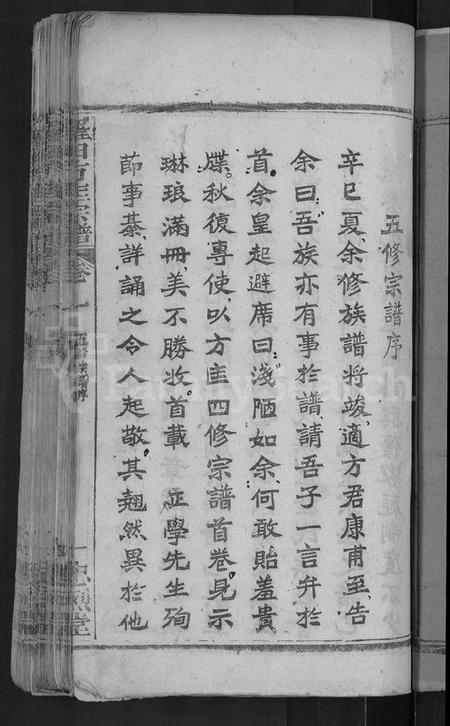 五修宗譜序
辛巳夏余修族譜將竣適方君康甫至告
余曰吾族亦有事於譜請吾子一言弁於
首余皇起避席曰淺陋如余何敢貽羞貴
牒秋復專使以方氏四修宗譜首卷見示
琳琅滿冊美不勝收首載 正學先生殉
節事綦詳誦之令人起敬其翹然異於他
宗譜 卷一 五修宗譜序 一
FamilySearch